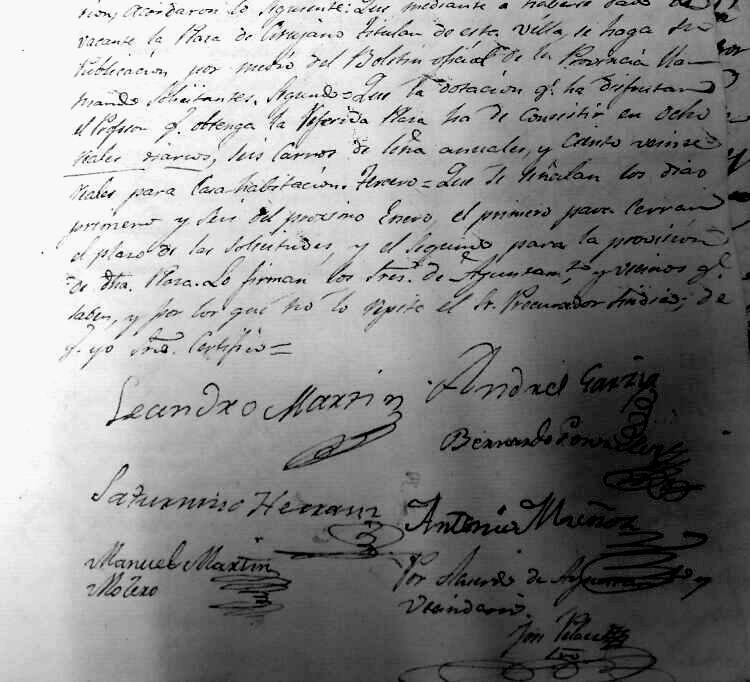 acordaron lo siguiente: Que mediante a haberse dado de
vacante la Plaza de Cirujano titular de esta villa, se haga su
Publicacion por medio del Boletin oficial de la Provincia lla-
mando Solicitantes. Segundo = Que la dotacion q.e ha disfrutar
el Profesor q.e obtenga la referida Plaza ha de consistir en ocho
reales diarios, seis Carros de leña anuales, y ciento veinte
reales para Casa habitacion. Tercero = Que se señalan los dias
primero y seis del proximo Enero, el primero para cerrar
el plazo de las solicitudes, y el segundo para la provision
de dha. Plaza. Lo firman los Sres. de Ayuntam.to y vecinos q.e
saben, y por los que no lo repite el Sr. Procurador Sindico; de
q.e yo Srio. Certifico =
Leandro Martin Andres Garzia
Bernardo Gonzalez
Saturnino Herranz Antonio Muñoz
Manuel Martin
Molero
Por Acuerdo de Ayuntamto y
Vecindario